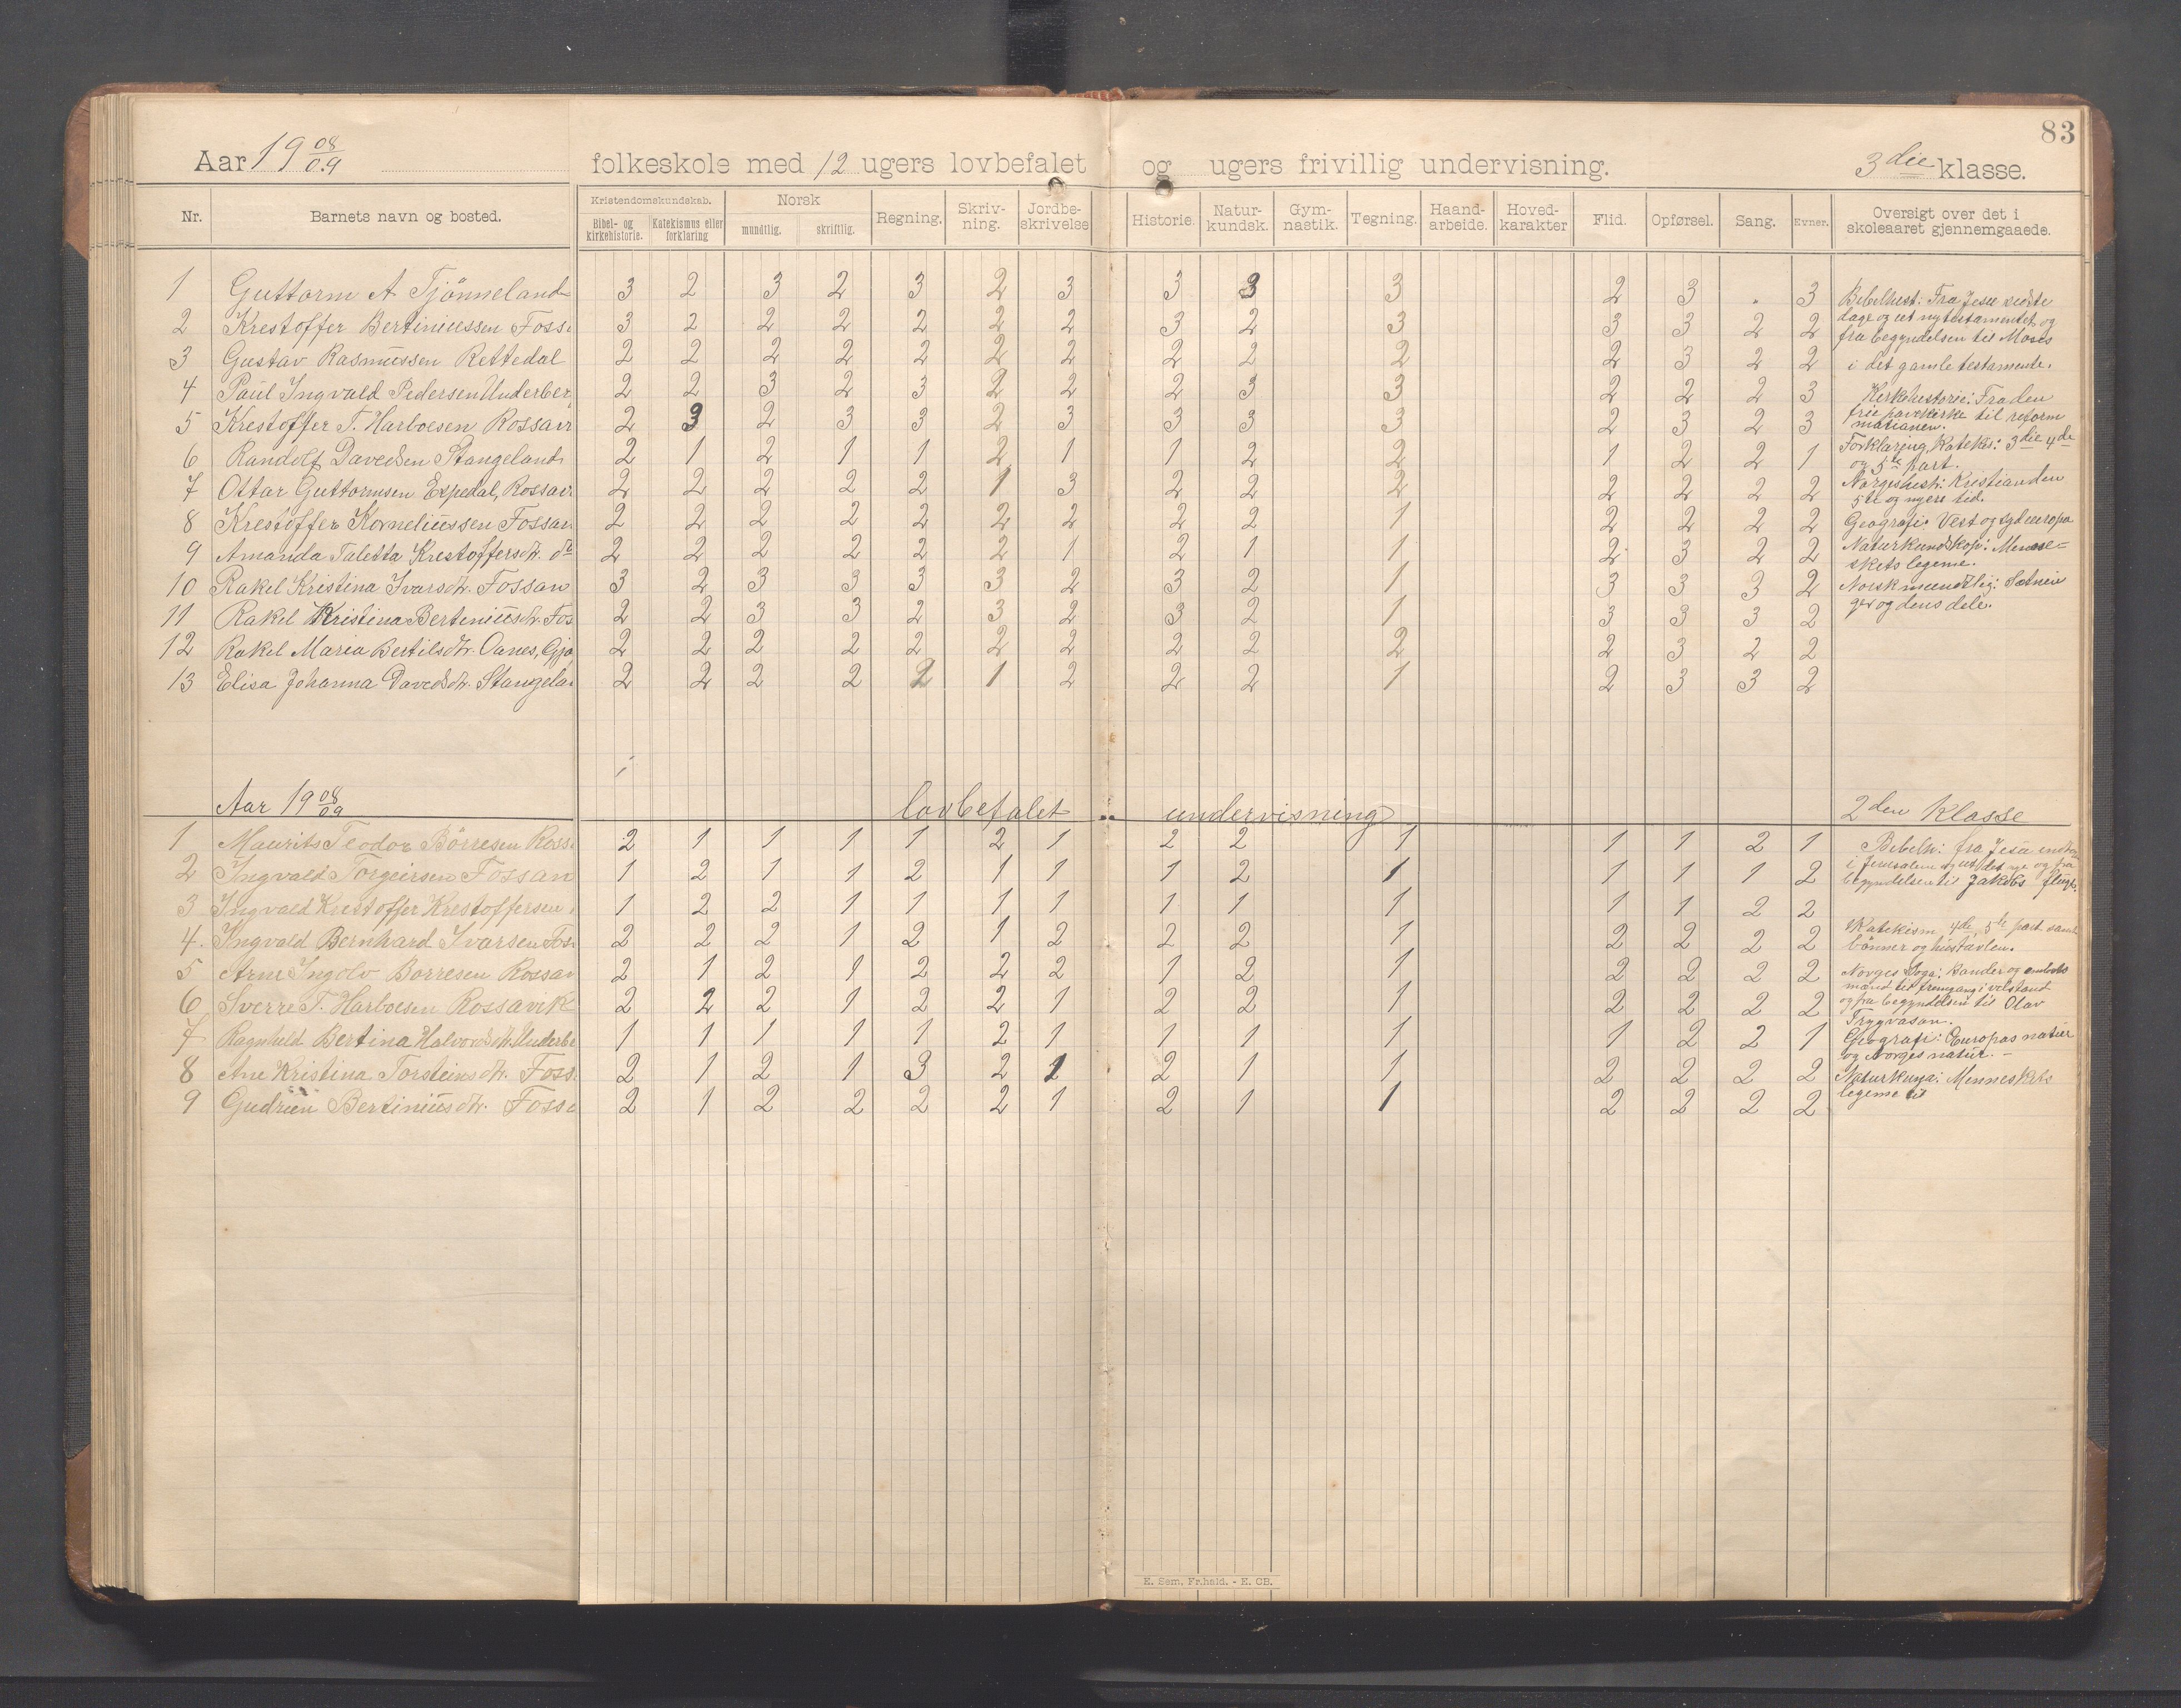 83
Aar 19 08/09 folkeskole med 12 ugers lovbefalet og ugers frivillig undervisning. 3die klasse.
Nr. Barnets navn og bosted. Kristendomskundskab. Bibel- og kirkehistorie. Katekismus eller forklaring Norsk mundtlig. skriftlig. Regning. Skriv-ning. Jordbe-skrivelse Historie. Natur-kundsk. Gym-nastik. Tegning. Haand-arbeide. Hoved-karakter Flid. Opførsel. Sang. Evner. Oversigt over det i skoleaaret gjennemgaaede.
1 Guttorm A Tjönneland 3 2 3 2 3 2 3 3 3 3 2 3 . 3 Bibelhist: Fra Jesu sidste
2 Krestoffer Bertiniussen Foss 3 2 2 2 2 2 2 3 2 3 3 3 2 2 dage og ut nytestamentet og
fra begyndelsen til Moses
3 Gustav Rasmussen Rettedal 2 2 2 2 2 2 2 2 2 2 2 3 2 2 i det gamle testamente.
4 Paul Ingvald Pedersen Underber 2 2 3 2 3 2 2 2 3 3 2 2 2 3 Kirkehistorie: Fra den
5 Krestoffer T. Harboesen Rossavi 2 3 2 3 3 2 3 3 3 3 2 3 2 3 frie pavekirke til reform
mationen.
6 Randolf Davedsen Stangeland 2 1 2 1 1 2 1 1 2 2 1 2 2 1 Forklaring, Katekis: 3die 4de
og 5te part.
7 Ottar Guttormsen Espedal, Rossavi 2 2 2 2 2 1 3 2 2 2 2 2 2 2 Norgeshist: Kristian den
5te og nyere tid.
8 Krestoffer Korneliussen Fossan 2 2 2 2 2 2 2 2 2 1 2 2 2 2 Geografi: Vest og sydeuropa
9 Amanda Taletta Krestoffersdtr. do 2 2 2 2 2 2 1 2 1 1 2 3 2 2 Naturkundskap: Menne-
skets legeme.
10 Rakel Kristina Ivarsdtr. Fossan 3 2 3 3 3 3 2 3 2 1 3 3 3 2 Norsk mundtlig: Sætnin
ger og dens dele.
11 Rakel Kristina Bertiniusdtr. Fos 2 2 3 3 2 3 2 3 2 1 3 3 3 2
12 Rakel Maria Bertilsdtr. Oanes, Gjø 2 2 2 2 2 2 2 2 2 2 2 3 2 2
13 Elisa Johanna Davedsdtr. Stangela 2 2 2 2 2 1 2 2 2 1 2 3 3 2
Aar 19 08/09 lovbefalet undervisning 2den Klasse
1 Maurits Teodor Börresen Ross 2 1 1 1 1 2 1 2 2 1 1 1 2 1 Bibelh: fra Jesu indtog
i Jerusalem og ut det nye og fra
2 Ingvald Torgeirsen Fossan 1 2 1 1 2 1 1 1 2 1 1 1 1 2 begyndelsen til Jakobs flugt.
3 Ingvald Krestoffer Krestoffersen 1 2 2 1 1 1 1 1 1 1 1 1 2 2
Katekism 4de, 5te part samt
4. Ingvald Bernhard Ivarsen Fos 2 2 2 1 2 1 2 2 2 1 2 2 2 2 bönner og hustavlen.
5 Arne Ingolv Borresen Rossav 2 1 2 1 2 2 2 1 2 1 2 2 2 2 Norges Soga: Bønder og embeds
mænd til fremgang i velstand
6 Sverre T. Harboesen Rossavik 2 2 2 1 2 2 1 2 2 1 2 2 2 2 og fra begyndelsen til Olav
Trygvason.
7 Ragnhild Bertina Halvorsdtr. Underbe 1 1 1 1 1 2 1 1 1 1 1 2 2 1 Geografi: Europas natur
og Norges natur. -
8 Ane Kristina Torsteinsdtr. Foss 2 1 2 1 3 2 1 2 1 1 2 2 2 2 Naturkunna: Menneskets
9 Gudrun Bertiniusdtr. Fossa 2 1 2 2 2 2 1 2 1 1 2 2 2 2 legeme til
E. Sem, Fr.hald. - E. CB.